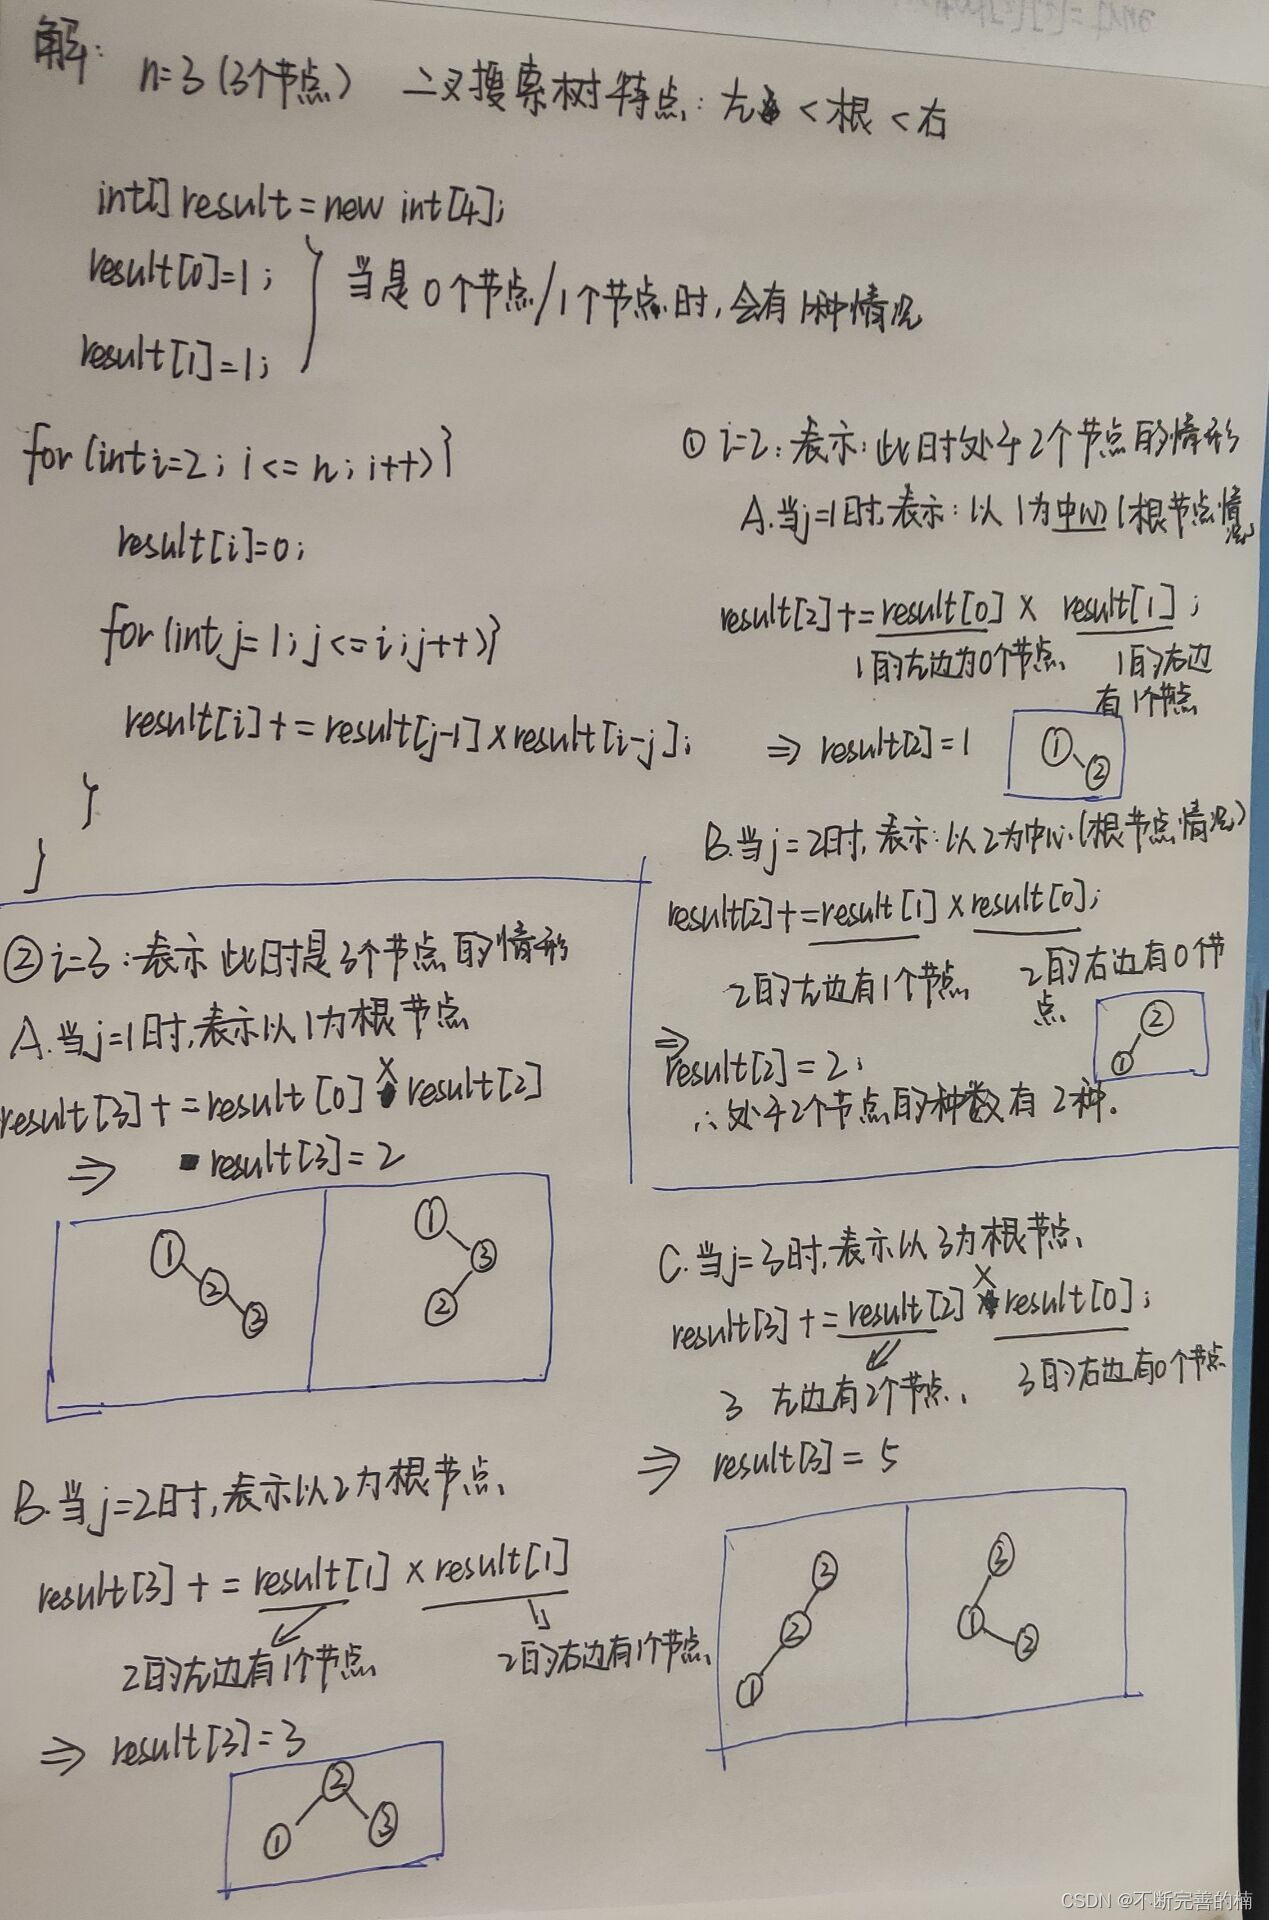 解:
n=3 (3个节点) 二叉搜索树特点: 左 < 根 < 右
int[] result = new int[4];
result[0]=1;
result[1]=1;
当是0个节点/1个节点时, 会有1种情况
for (int i=2; i <= n; i++) {
result[i]=0;
for (int j=1; j <= i; j++) {
result[i] += result[j-1] × result[i-j];
}
}
① i=2: 表示: 此时处于2个节点的情形
A. 当j=1时, 表示: 以1为中心 (根节点情况)
result[2] += result[0] × result[1];
1的左边为0个节点 1的右边
有1个节点
⇒ result[2]=1
① ②
B. 当j=2时, 表示: 以2为中心 (根节点情况)
result[2] += result[1] × result[0];
2的左边有1个节点 2的右边有0个节
点
⇒ result[2] = 2;
② ①
∴ 处于2个节点的种数有2种.
② i=3: 表示此时是3个节点的情形
A. 当j=1时, 表示以1为根节点
result[3] += result[0] × result[2]
⇒ result[3] = 2
① ② ③
① ③ ②
B. 当j=2时, 表示以2为根节点
result[3] += result[1] × result[1]
2的左边有1个节点 2的右边有1个节点
⇒ result[3] = 3
② ① ③
C. 当j=3时, 表示以3为根节点
result[3] += result[2] × result[0];
3 左边有2个节点 3的右边有0个节点
⇒ result[3] = 5
③ ② ①
③ ① ②
CSDN @不断完善的楠